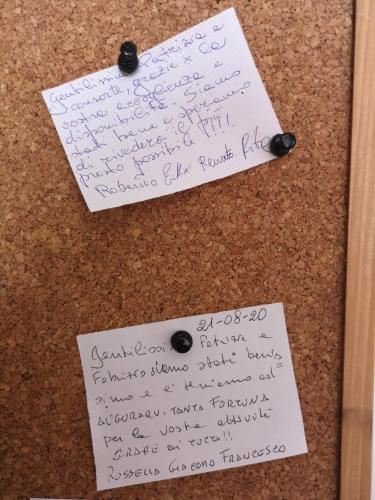 Gentilissima Patrizia e
consorte, grazie x la
vostra accoglienza e
disponibilità. Siamo
stati bene e speriamo
di rivederci il più
presto possibile !!!!
Roberto Erika Renato Rita
21-08-20
Gentilissi Patrizia e
Fabrizio siamo stati benis
simo e ci teniamo ad=
AUGURARVI TANTA FORTUNA
per la vostra attività
GRAZIE di TUTTO!!
ROSSELLA GIACOMO FRANCESCO